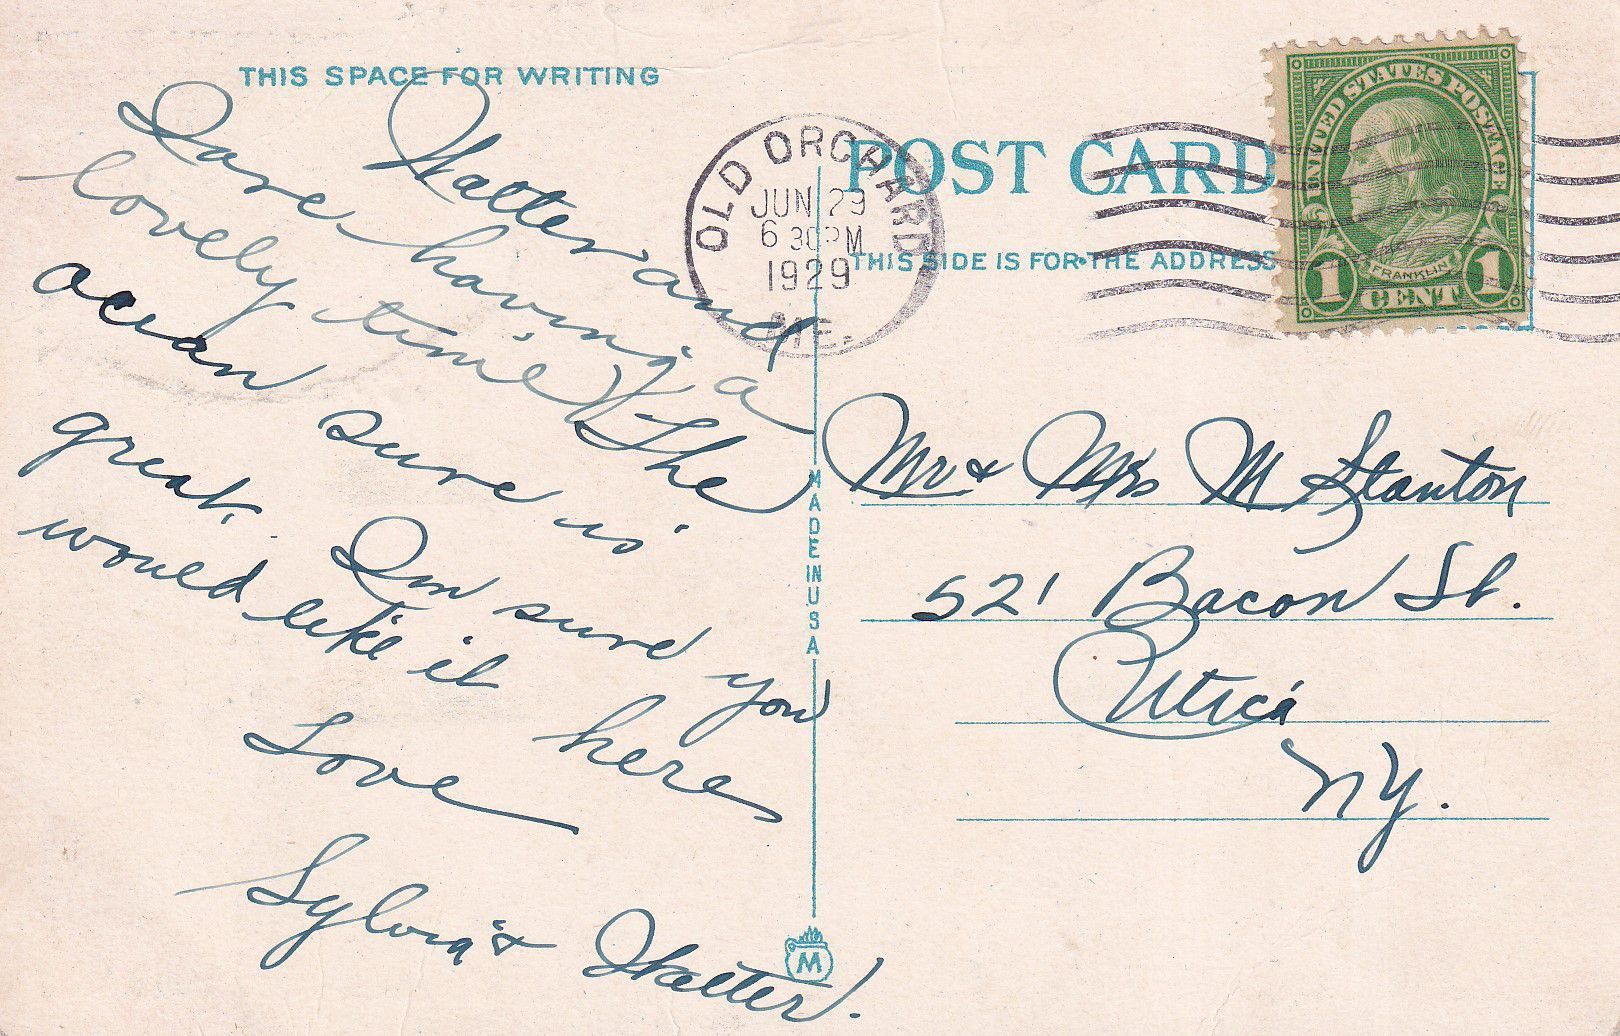 THIS SPACE FOR WRITING
Walter and
I are having a
lovely time. The
ocean sure is
great. Im sure you
would like it here
Love
Sylvia & Walter.
OLD ORCHARD
JUN 29
6 30PM
1929
ME.
POST CARD
THIS SIDE IS FOR THE ADDRESS
UNITED STATES POSTAGE
FRANKLIN
1 CENT 1
MADE IN USA
Mr. & Mrs M Stanton
521 Bacon St.
Utica
NY.
M